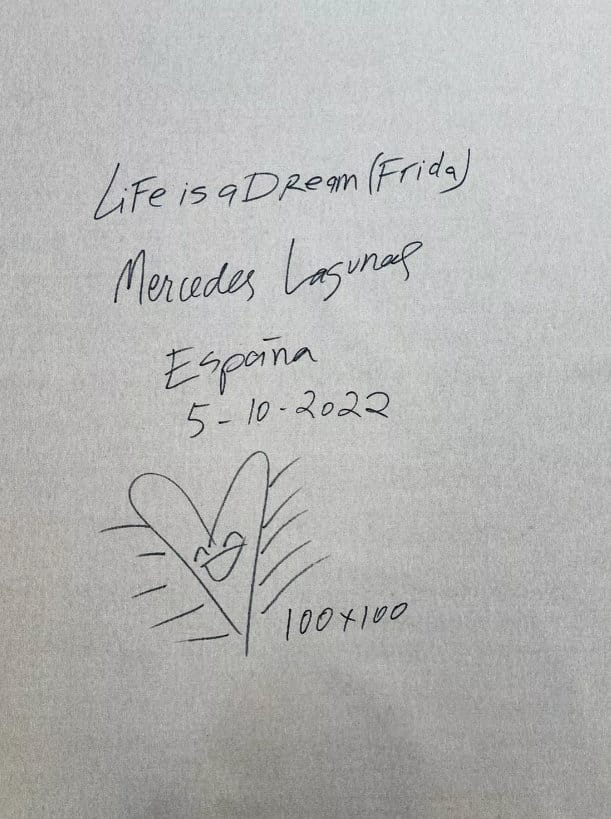 Life is a Dream (Frida)
Mercedes Lagunas
España
5-10-2022
100x100